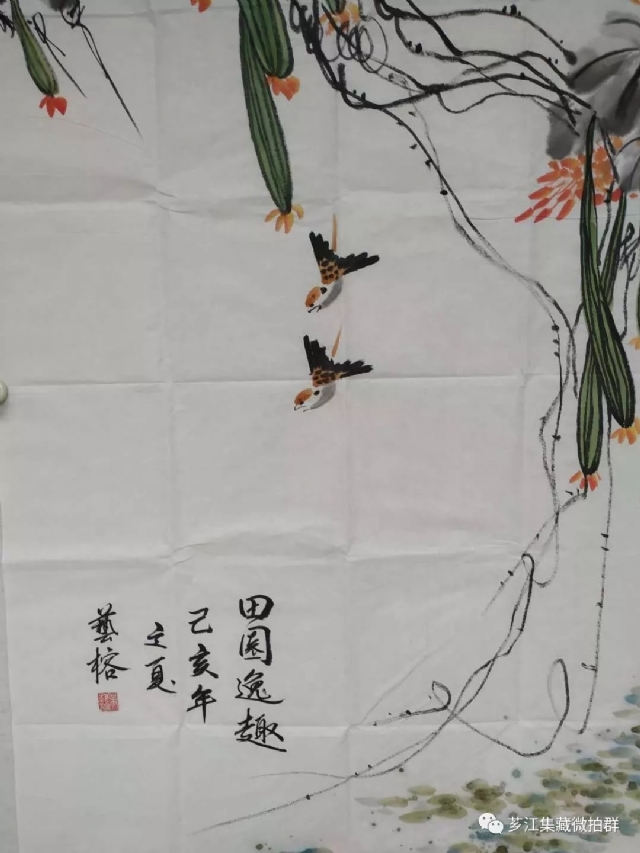 田园逸趣
己亥年
立夏
藝榕
芗江集藏微拍群